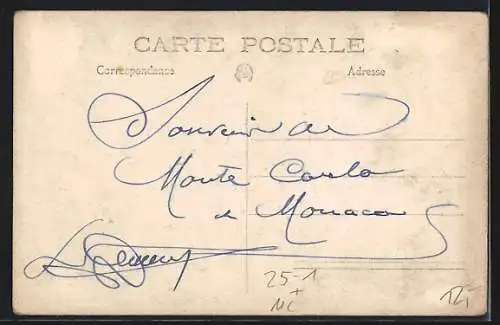 CARTE POSTALE
Correspondance Adresse
Souvenir de
Monte Carlo
& Monaco
25-1
+
MC